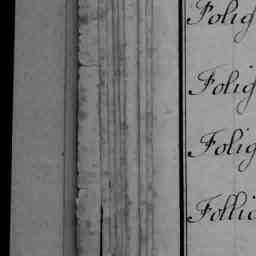 Folig
Folig
Folig
Follic